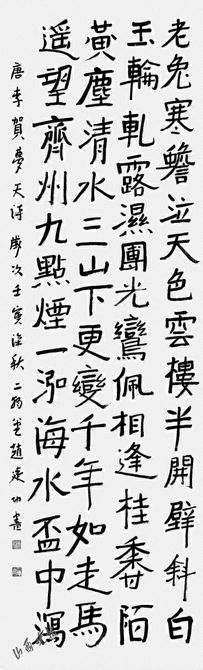 老兔寒蟾泣天色雲樓半開壁斜白
玉輪軋露濕團光鸞佩相逢桂香陌
黃塵清水三山下更變千年如走馬
遙望齊州九點煙一泓海水盃中瀉
唐李賀夢天詩 歲次壬寅深秋 趙建功書